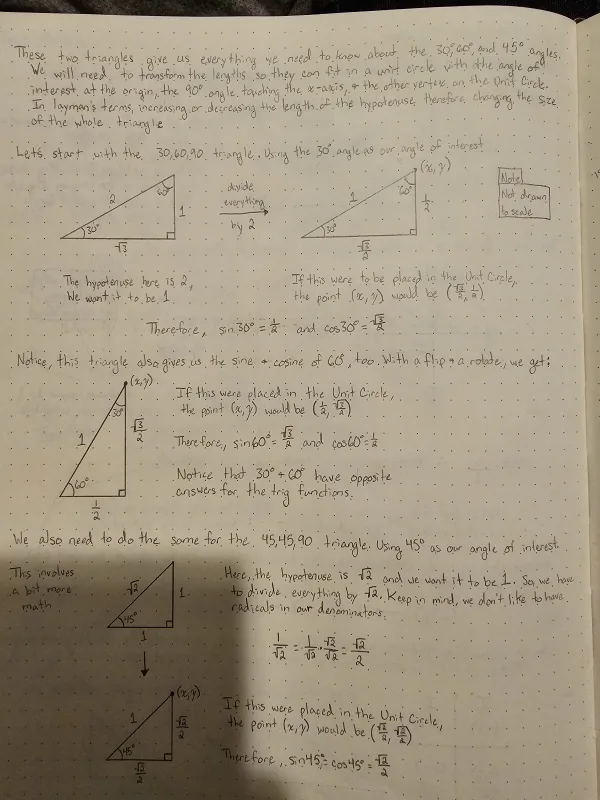 These two triangles give us everything we need to know about the 30°, 60°, and 45° angles.
We will need to transform the lengths so they can fit in a unit circle with the angle of
interest at the origin, the 90° angle touching the x-axis, + the other vertex on the Unit Circle.
In layman's terms, increasing or decreasing the length of the hypotenuse, therefore changing the size
of the whole triangle
Let's start with the 30,60,90 triangle. Using the 30° angle as our angle of interest
2
60°
1
30°
√3
divide
everything
by 2
(x,y)
1
60°
1/2
30°
√3/2
Note
Not drawn
to scale
The hypotenuse here is 2,
We want it to be 1.
If this were to be placed in the Unit Circle,
the point (x,y) would be (√3/2, 1/2)
Therefore, sin30° = 1/2 and cos30° = √3/2
Notice, this triangle also gives us the sine + cosine of 60°, too. With a flip + a rotate, we get:
(x,y)
30°
1
√3/2
60°
1/2
If this were placed in the Unit Circle,
the point (x,y) would be (1/2, √3/2)
Therefore, sin60° = √3/2 and cos60° = 1/2
Notice that 30° + 60° have opposite
answers for the trig functions.
We also need to do the same for the 45,45,90 triangle. Using 45° as our angle of interest.
This involves
a bit more
math
√2
1
45°
1
Here, the hypotenuse is √2 and we want it to be 1. So, we have
to divide everything by √2. Keep in mind, we don't like to have
radicals in our denominators.
1/√2 = 1/√2 · √2/√2 = √2/2
(x,y)
1
√2/2
45°
√2/2
If this were placed in the Unit Circle,
the point (x,y) would be (√2/2, √2/2)
Therefore, sin45° = cos45° = √2/2